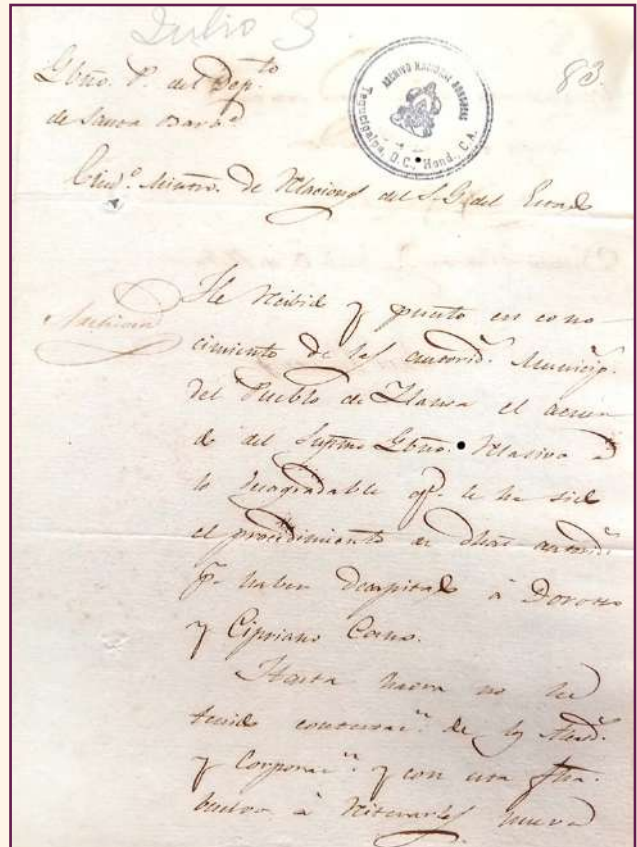 Julio 3
83.
Gbno. P. del Dep.to
de Santa Barb.a
ARCHIVO NACIONAL HONDURAS
Tegucigalpa, D.C., Hond., C.A.
Ciud.o Mintro. de Relacions del S. G. del Estado
He recibido y puesto en cono
cimiento de las autorid.s Municip.s
del Pueblo de Ilama el acuer
do del Supmo Gbno. relativo à
lo desagradable qe. le ha sido
el procedimiento de dhas autorid.s
pr. haber à Doroteo
y Cipriano Cano.
Hasta haora no he
tenido contestac.n de los
y Corporac.n y con esta fha.
buelvo à reiterarles nueva